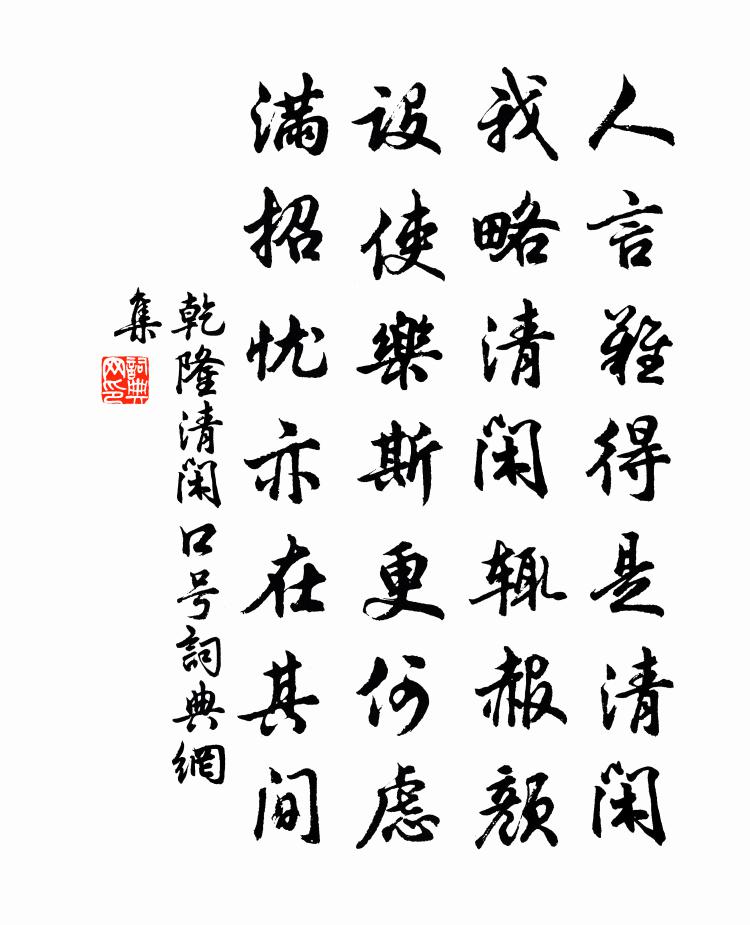 人言難得是清闲
我略清闲辄赧颜
設使樂斯更何慮
满招忧亦在其间
乾隆清闲口号詞典網
集
詞典
网印